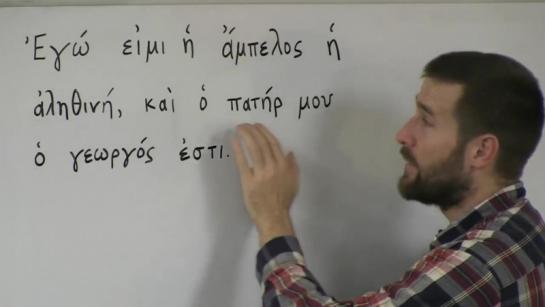 Ἐγώ εἰμι ἡ ἄμπελος ἡ
ἀληθινή, καὶ ὁ πατήρ μου
ὁ γεωργός ἐστι.